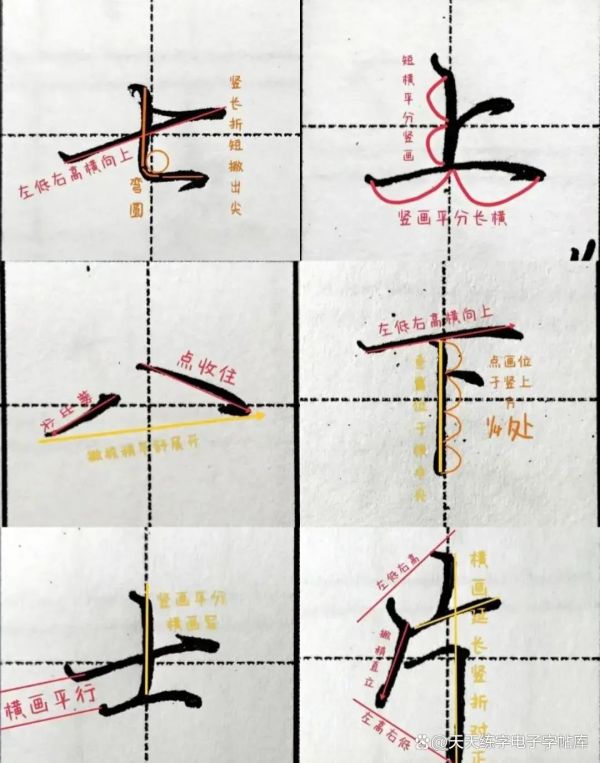 七
竖长折短撇出尖
左低右高横向上
弯圆
上
短横平分竖画
竖画平分长横
八
点收住
撇出尖
下
左低右高横向上
点画位
于竖上
方
1/4处
士
竖画平分
横画写
横画平行
左低右高
左高右低
横画延长竖折对正
天天练字电子字帖库